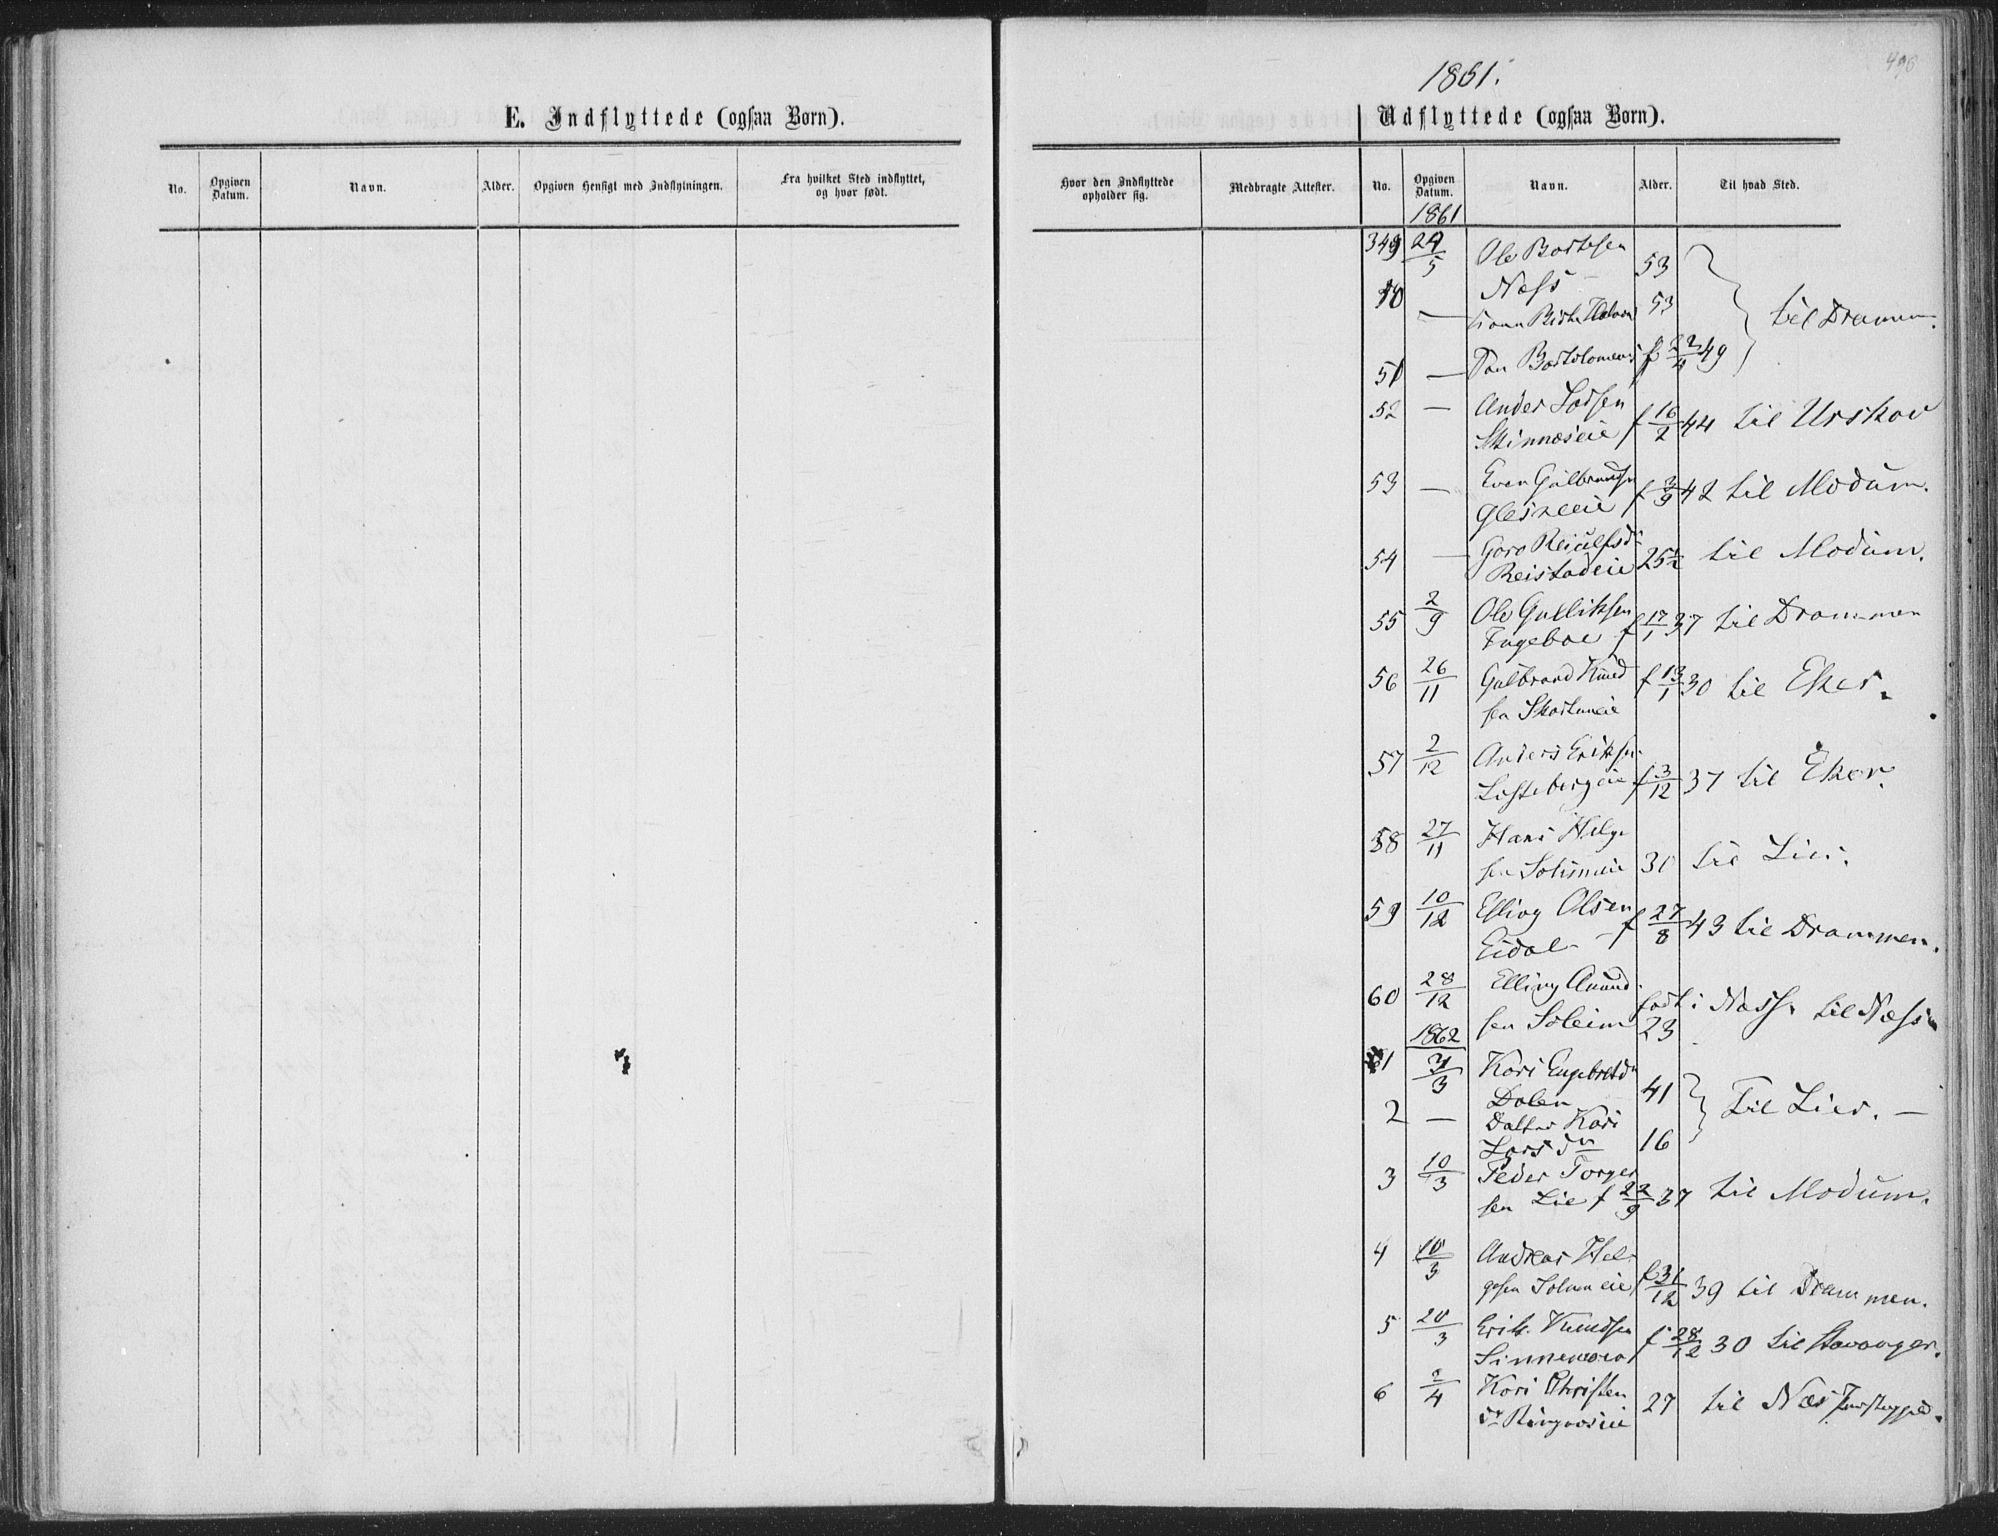 E. Indflyttede (ogsaa Børn).
No.
Opgiven Datum.
Navn.
Alder.
Opgiven Hensigt med Indflytningen.
Fra hvilket Sted indflyttet, og hvor født.
498
1861.
Udflyttede (ogsaa Børn).
Hvor den Indflyttede opholder sig.
Medbragte Attester.
No.
Opgiven Datum.
Navn.
Alder.
Til hvad Sted.
1861
349 24/5 Ole
Næss 53
50 — 53 til Drammen.
51 — f 22/4 49
52 — Anders
f 16/2 44 til Urskov
53 — Even Gulbrandsen
Glesneeie f 3/9 42 til Modum.
54 — Goro
Reistadeie 25½ til Modum.
55 2/9 Ole Gulliksen
f 17/1 37 til Drammen
56 26/11 Gulbrand Knud
sen f 13/1 30 til Eker.
57 2/12 Anders Eriksen
f 3/12 37 til Eker.
58 27/11 Hans Helge
sen 31 til Lier.
59 10/12 Elling Olsen
Eidal — f 27/8 43 til Drammen.
60 28/12 Elling Amund
sen Soleim født i Næss. 23 til Næss
1862
61 3/3 Kari Engebretsdr
Dalen 41
2 — Datter Kari
Larsdr 16 Til Lier. —
3 10/3 Peder Torger
sen Lie f 22/9 37 til Modum.
4 10/3 Andreas Hel
gesen f 31/12 39 til Drammen.
5 20/3 Erik Knudsen
f 28/12 30 til Stavanger.
6 2/4 Kari Christen
dr Ringnæseie 27 til Næs